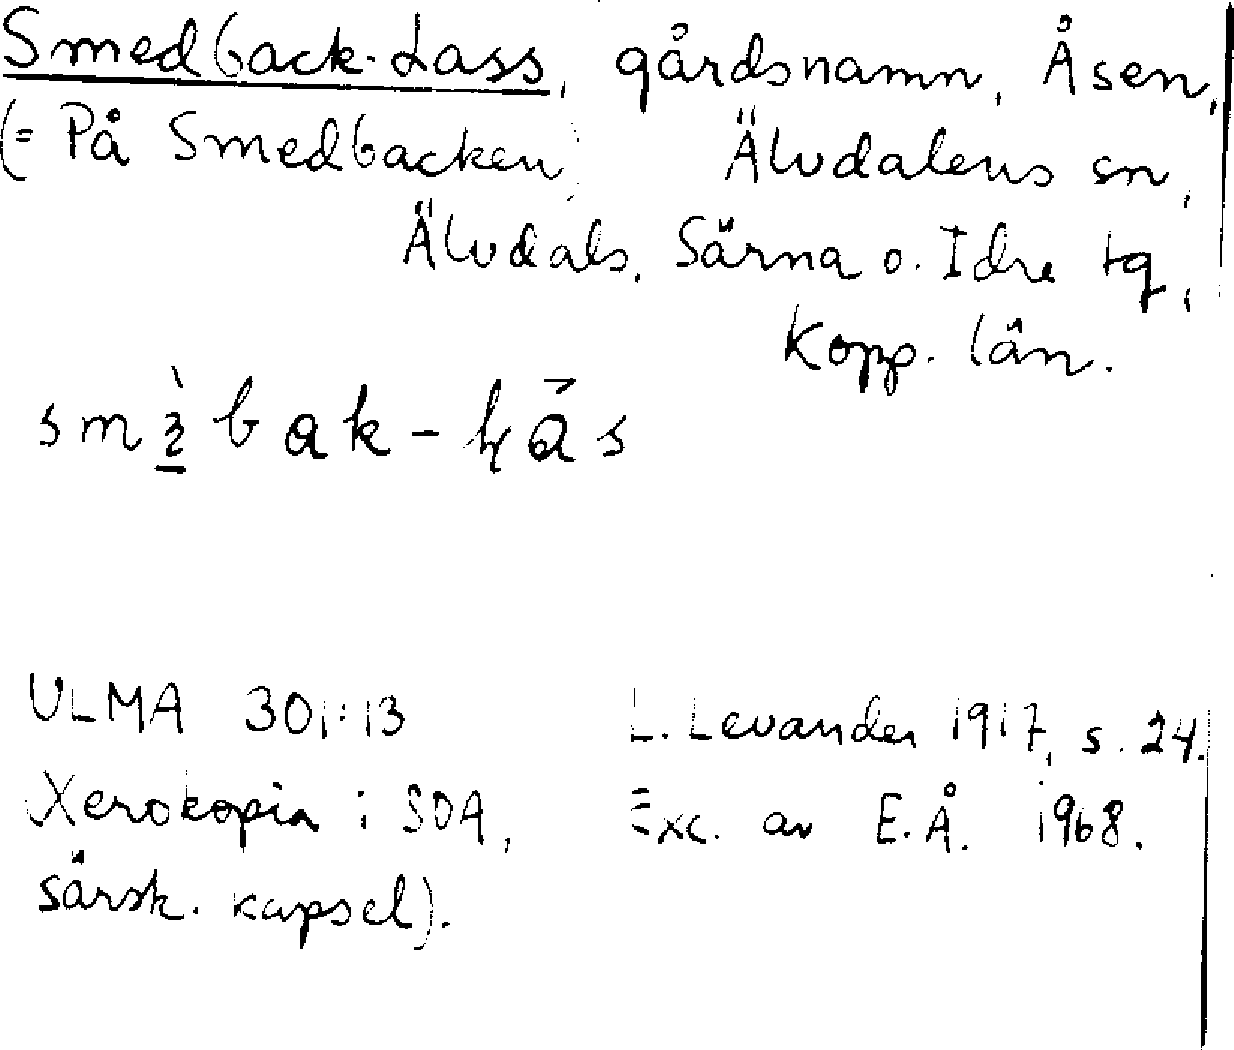 Smedback-Lass, gårdsnamn, Åsen,
(= På Smedbacken) Älvdalens sn,
Älvdals, Särna o. Idre tg,
Kopp. län.
ULMA 301:13 L. Levander 1917, s. 24.
Xerokopia i SOA, Exc. av E.Å. 1968.
särsk. kapsel).